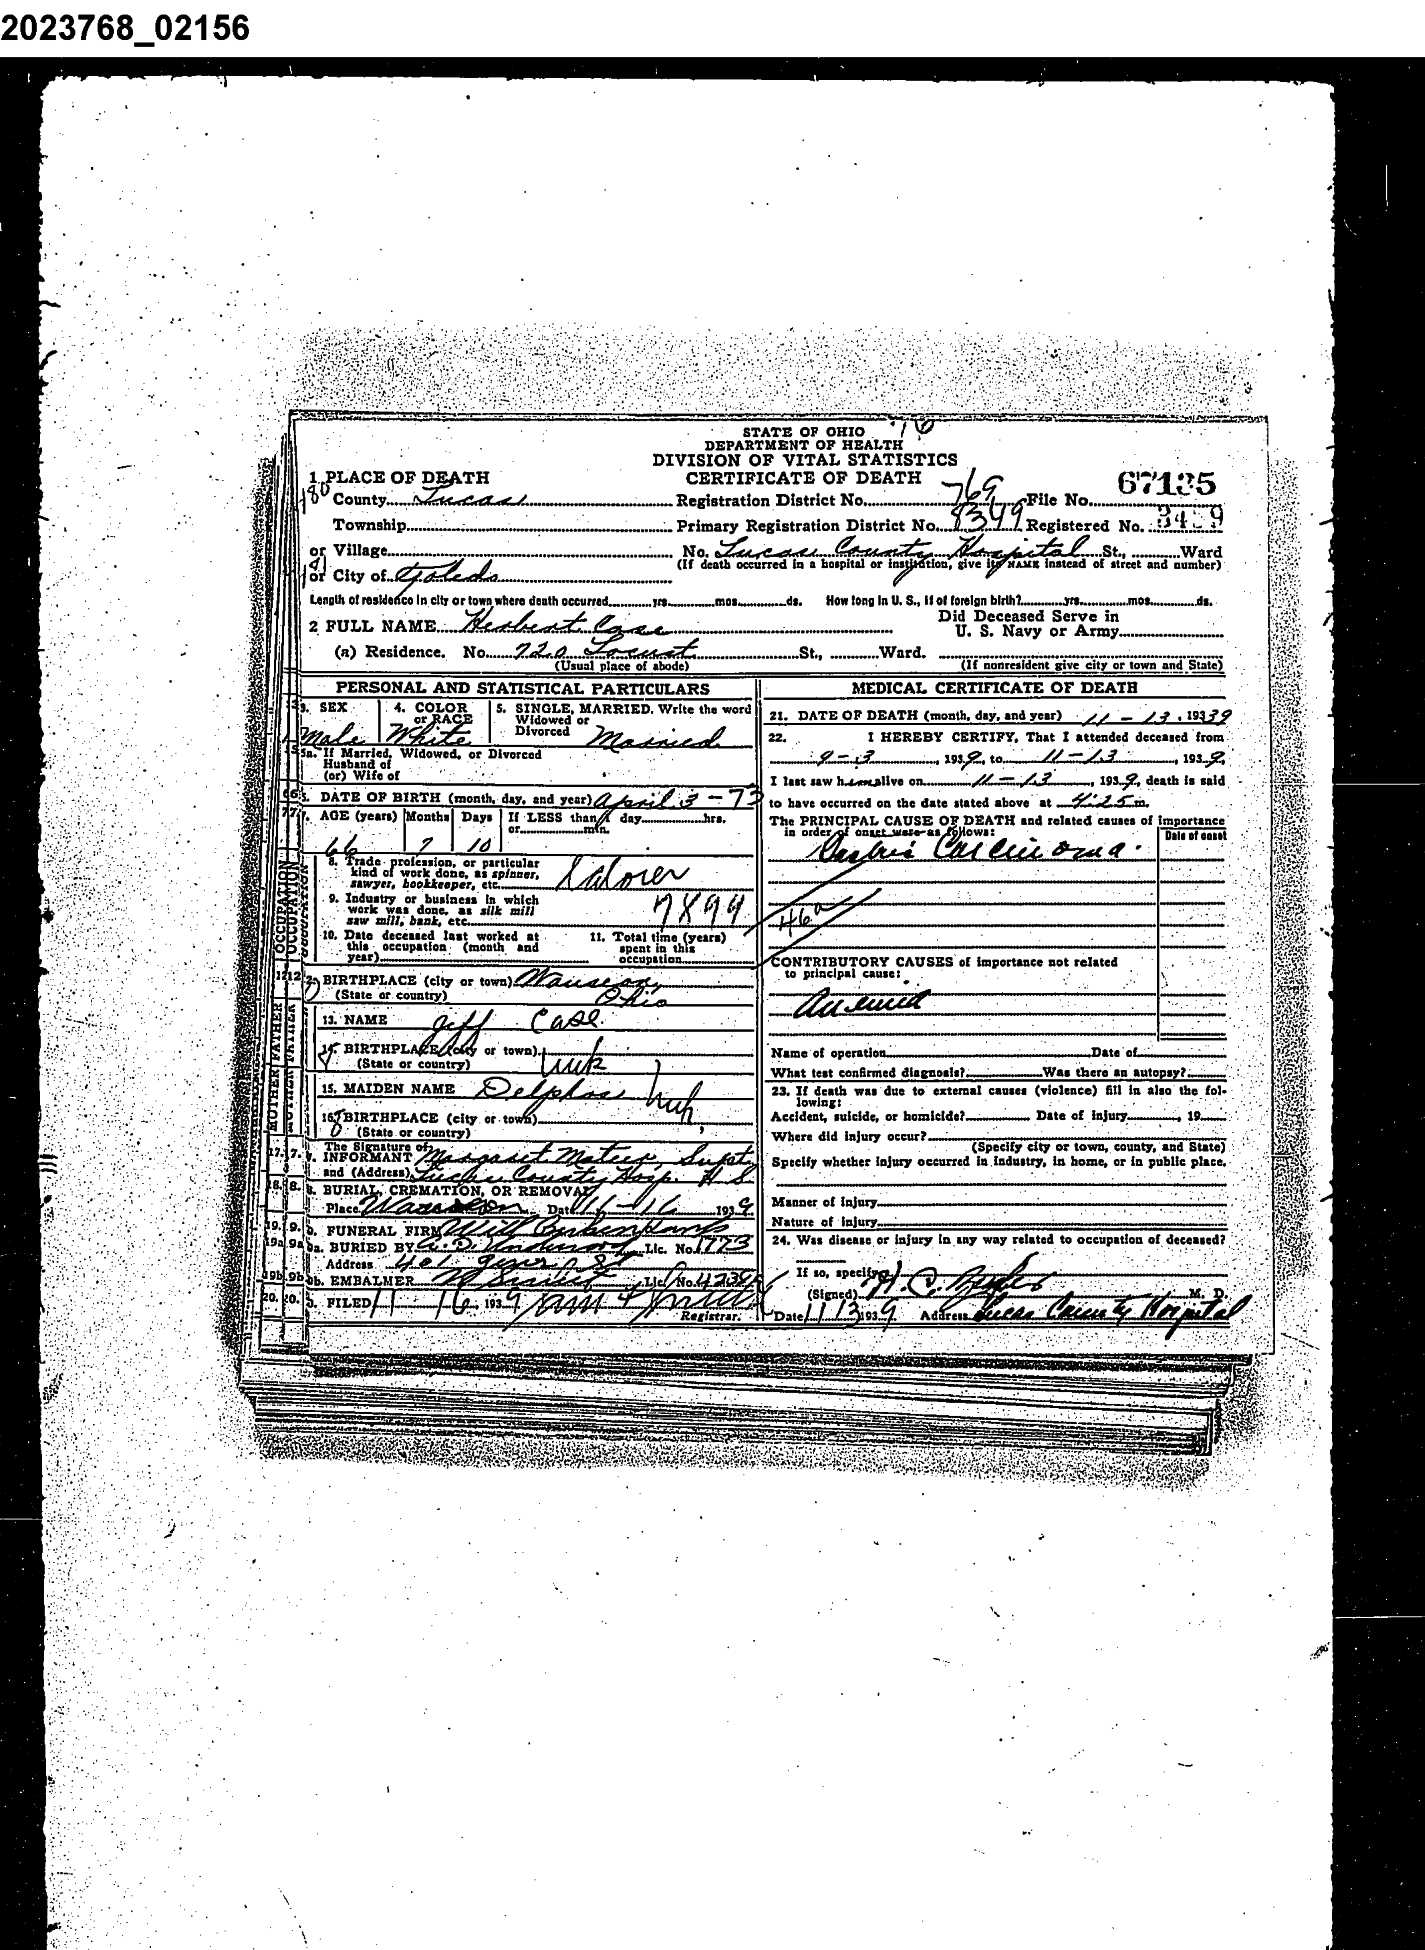 2023768_02156
16
STATE OF OHIO
DEPARTMENT OF HEALTH
DIVISION OF VITAL STATISTICS
CERTIFICATE OF DEATH
1 PLACE OF DEATH
County Lucas Registration District No. 769 File No. 67135
Township Primary Registration District No. 8349 Registered No.
or Village No. Lucas County Hospital St., Ward
(If death occurred in a hospital or institution, give its NAME instead of street and number)
or City of Toledo
Length of residence in city or town where death occurred yrs. mos. ds. How long in U. S., if of foreign birth? yrs. mos. ds.
2 FULL NAME Herbert Case Did Deceased Serve in
U. S. Navy or Army
(a) Residence. No. 720 Locust St., Ward.
(Usual place of abode) (If nonresident give city or town and State)
PERSONAL AND STATISTICAL PARTICULARS
3. SEX 4. COLOR or RACE 5. SINGLE, MARRIED. Write the word Widowed or Divorced
Male White Married
5a. If Married, Widowed, or Divorced
Husband of
(or) Wife of
6. DATE OF BIRTH (month, day, and year) April 3 - 73
7. AGE (years) Months Days If LESS than 1 day hrs.
or min.
66 7 10
8. Trade profession, or particular
kind of work done, as spinner,
sawyer, bookkeeper, etc. Laborer
9. Industry or business in which
work was done, as silk mill
saw mill, bank, etc. 7899
10. Date deceased last worked at
this occupation (month and
year)
11. Total time (years)
spent in this
occupation
12. BIRTHPLACE (city or town) Wauseon,
(State or country) Ohio
13. NAME Jeff Case
14. BIRTHPLACE (city or town)
(State or country) Unk
15. MAIDEN NAME Delphas
16. BIRTHPLACE (city or town) Unk,
(State or country)
17. The Signature of
INFORMANT Margaret Mateer, Supt
and (Address) Lucas County Hosp. H S
18. BURIAL, CREMATION, OR REMOVAL
Place Wauseon Date 11-16 1939
19. FUNERAL FIRM Will
19a. BURIED BY Lic. No. 1773
Address 401 St
19b. EMBALMER Lic. No.
20. FILED 11 16 1939
Registrar.
MEDICAL CERTIFICATE OF DEATH
21. DATE OF DEATH (month, day, and year) 11 - 13, 19339
22. I HEREBY CERTIFY, That I attended deceased from
9-3, 1939, to 11-13, 1939,
I last saw him alive on 11-13, 1939, death is said
to have occurred on the date stated above at 4:25 m.
The PRINCIPAL CAUSE OF DEATH and related causes of importance
in order of onset were as follows: Date of onset
Gastric Carcinoma.
46a
CONTRIBUTORY CAUSES of importance not related
to principal cause:
Anemia
Name of operation Date of
What test confirmed diagnosis? Was there an autopsy?
23. If death was due to external causes (violence) fill in also the fol-
lowing:
Accident, suicide, or homicide? Date of injury, 19
Where did injury occur?
(Specify city or town, county, and State)
Specify whether injury occurred in industry, in home, or in public place.
Manner of injury
Nature of injury
24. Was disease or injury in any way related to occupation of deceased?
If so, specify
(Signed) H. C. M. D.
Date 11 13 1939 Address Lucas County Hospital